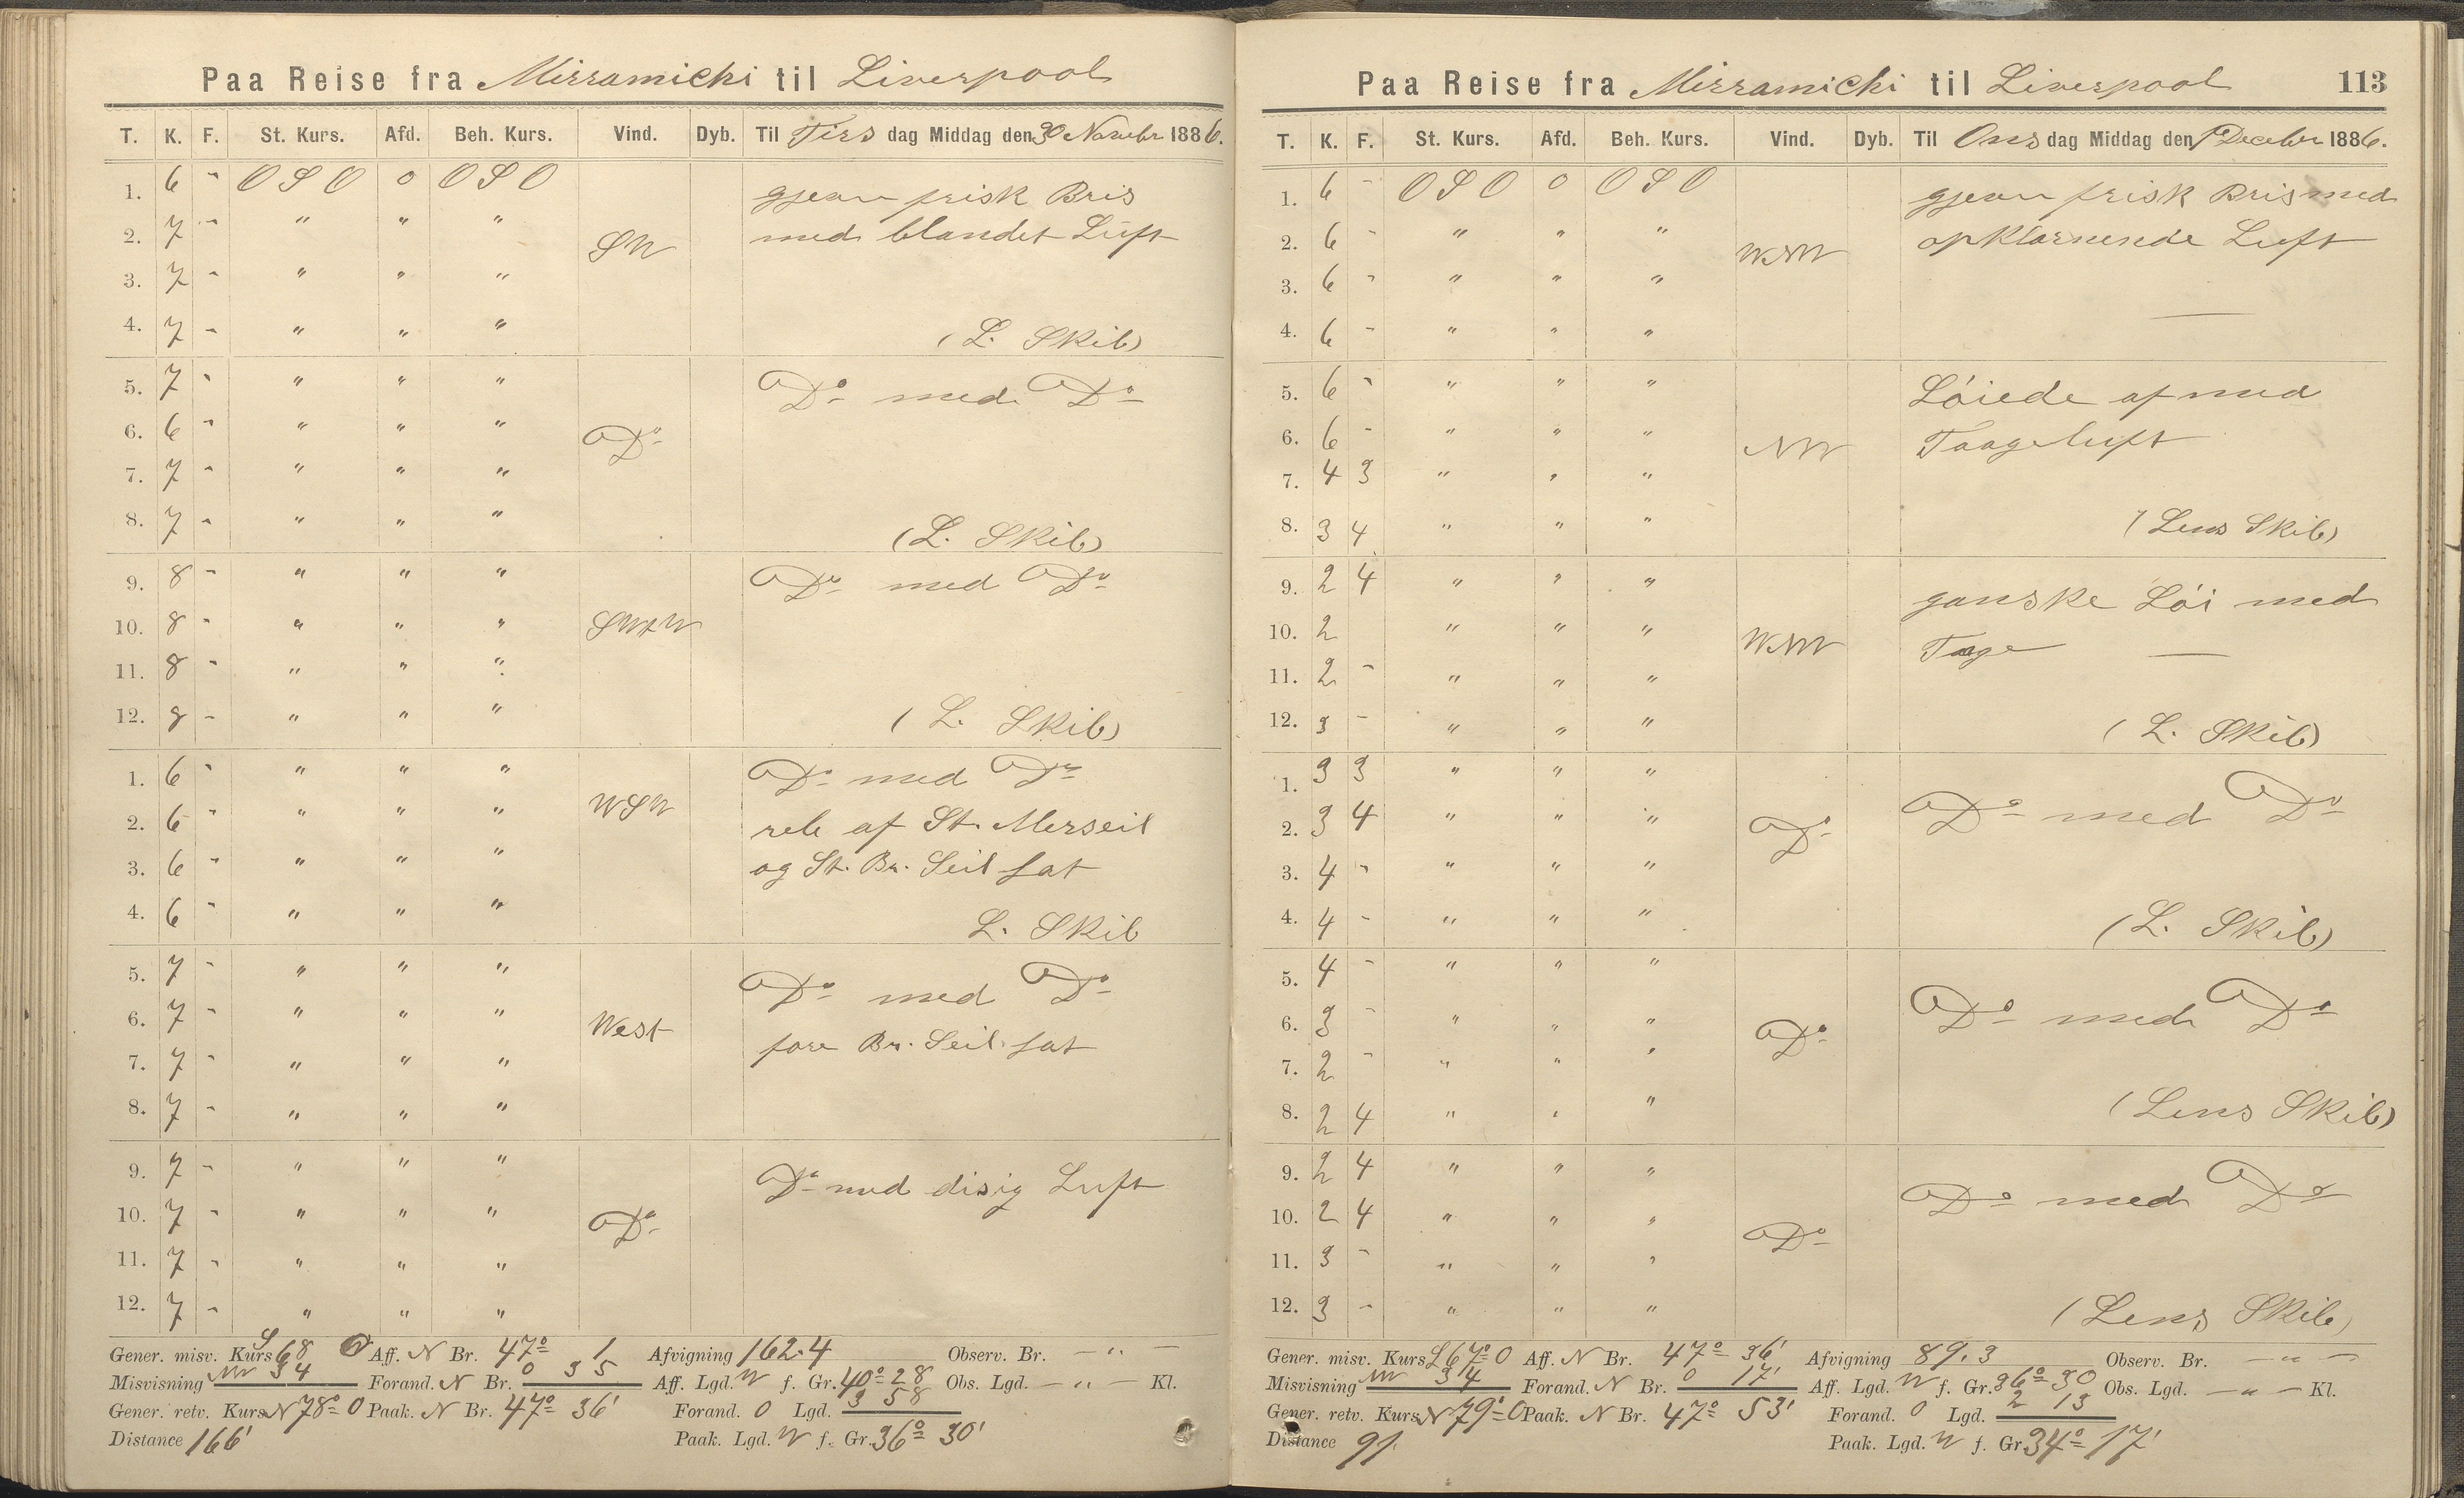 Paa Reise fra Mirramichi til Liverpool
T. K. F. St. Kurs. Afd. Beh. Kurs. Vind. Dyb. Til Tirs dag Middag den 30 Novembr 1886.
1. 6 - O S O 0 O S O gjean frisk Bris
2. 7 - " " " SW med blandet Luft
3. 7 - " " "
4. 7 - " " " (L. Skib)
5. 7 - " " " Do med Do
6. 6 - " " " Do
7. 7 - " " "
8. 7 - " " " (L. Skib)
9. 8 - " " " Do med Do
10. 8 - " " " SWtW
11. 8 - " " "
12. 8 - " " " (L. Skib)
1. 6 - " " " Do med Do
2. 6 - " " " WSW reb af St. Merseil
3. 6 - " " " og St. Br. Seil sat
4. 6 - " " " L. Skib
5. 7 - " " " Do med Do
6. 7 - " " " West
7. 7 - " " " fore Br. Seil sat
8. 7 - " " "
9. 7 - " " " Do med disig Luft
10. 7 - " " " Do
11. 7 - " " "
12. 7 - " " "
Gener. misv. Kurs S 68 O Aff. N Br. 47° 1 Afvigning 162.4 Observ. Br. - " -
Misvisning NW 34 Forand. N Br. 0 35 Aff. Lgd. W f. Gr. 40° 28 Obs. Lgd. - " - Kl.
Gener. retv. Kurs N 78° O Paak. N Br. 47° 36' Forand. O Lgd. 3 58
Distance 166' Paak. Lgd. W f. Gr. 36° 30'
Paa Reise fra Mirramichi til Liverpool 113
T. K. F. St. Kurs. Afd. Beh. Kurs. Vind. Dyb. Til Ons dag Middag den 1e December 1886.
1. 6 - O S O 0 O S O gjean frisk Bris med
2. 6 - " " " WNW opklarnende Luft
3. 6 - " " "
4. 6 - " " "
5. 6 - " " " Löiede af med
6. 6 - " " " NW Taageluft
7. 4 3 " " "
8. 3 4 " " " (Lens Skib)
9. 2 4 " " " ganske Löi med
10. 2 " " " WNW Tage
11. 2 - " " "
12. 3 - " " " (L. Skib)
1. 3 3 " " "
2. 3 4 " " " Do Do med Do
3. 4 - " " "
4. 4 - " " " (L. Skib)
5. 4 - " " "
6. 3 - " " " Do Do med Do
7. 2 - " " "
8. 2 4 " " " (Lens Skib)
9. 2 4 " " " Do med Do
10. 2 4 " " " Do
11. 3 - " " "
12. 3 - " " " (Lens Skib)
Gener. misv. Kurs S 67° O Aff. N Br. 47° 36' Afvigning 89.3 Observ. Br. - " -
Misvisning NW 34 Forand. N Br. 0 17' Aff. Lgd. W f. Gr. 36° 30 Obs. Lgd. - " - Kl.
Gener. retv. Kurs N 79° O Paak. N Br. 47° 53' Forand. O Lgd. 2 13
Distance 91 Paak. Lgd. W f. Gr. 34° 17'